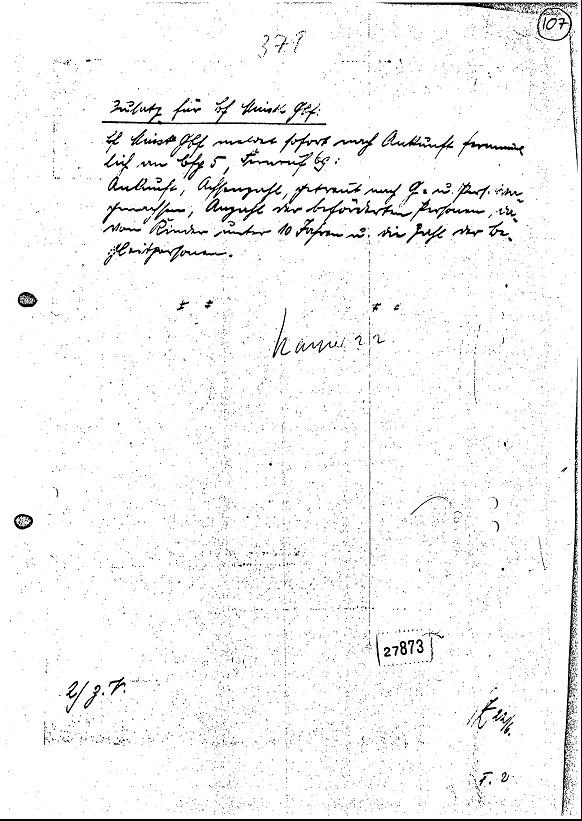 107
379
Zusatz für Bf Minsk Gbf:
Bf Minsk Gbf meldet sofort nach Ankunft fernmünd-
lich an Bfg 5, Fernruf 69:
Ankunft, Achsenzahl, getrennt nach G- u. Pers.
Anzahl der beförderten Personen, da-
von Kinder unter 10 Jahren u. die Zahl der Be-
gleitpersonen.
27873
2/ z. V.
22/6.